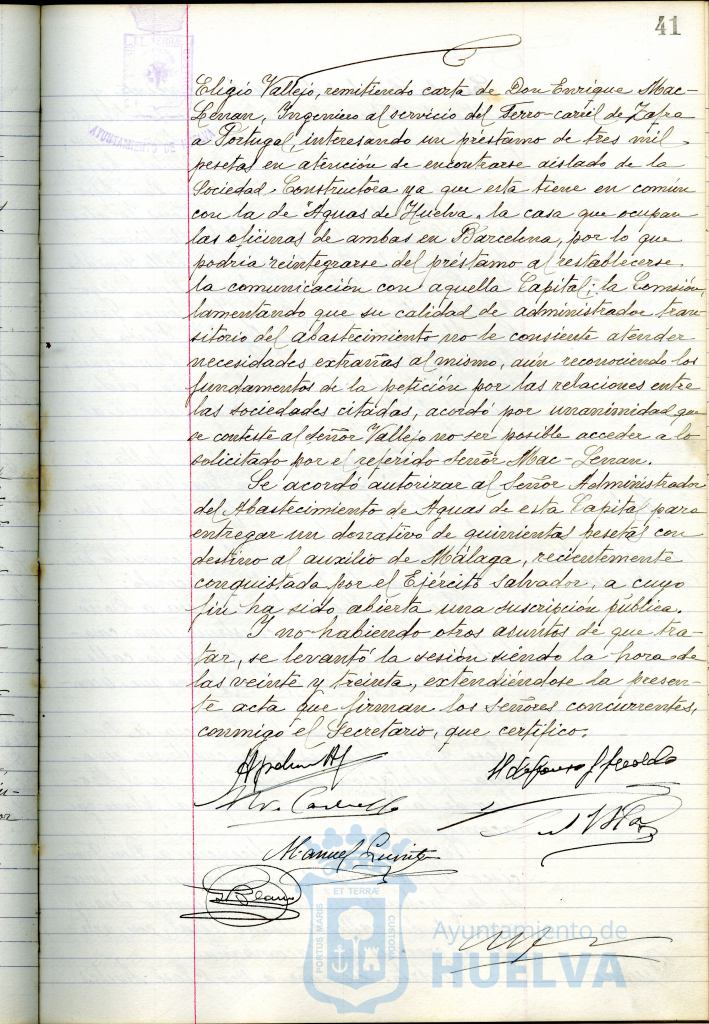 41
AYUNTAMIENTO DE HUELVA
Eligio Vallejo, remitiendo carta de Don Enrique Mac-
Lenan, Ingeniero al servicio del Ferro-carril de Zafra
a Portugal, interesando un préstamo de tres mil
pesetas en atención de encontrarse aislado de la
Sociedad Constructora ya que esta tiene en común
con la de Aguas de Huelva, la casa que ocupan
las oficinas de ambas en Barcelona, por lo que
podría reintegrarse del préstamo al restablecerse
la comunicación con aquella Capital; la Comisión,
lamentando que su calidad de administrador tran-
sitorio del abastecimiento no le consiente atender
necesidades extrañas al mismo, aún reconociendo los
fundamentos de la petición por las relaciones entre
las sociedades citadas, acordó por unanimidad que
se conteste al señor Vallejo no ser posible acceder a lo
solicitado por el referido señor Mac-Lenan.
Se acordó autorizar al Señor Administrador
del Abastecimiento de Aguas de esta Capital para
entregar un donativo de quinientas pesetas con
destino al auxilio de Málaga, recientemente
conquistada por el Ejército Salvador, a cuyo
fin ha sido abierta una suscripción pública.
Y no habiendo otros asuntos de que tra-
tar, se levantó la sesión siendo la hora de
las veinte y treinta, extendiéndose la presen-
te acta que firman los señores concurrentes,
conmigo el Secretario, que certifico.
Manuel
ET TERRÆ
PORTUS MARIS
CUSTODIA
Ayuntamiento de
HUELVA